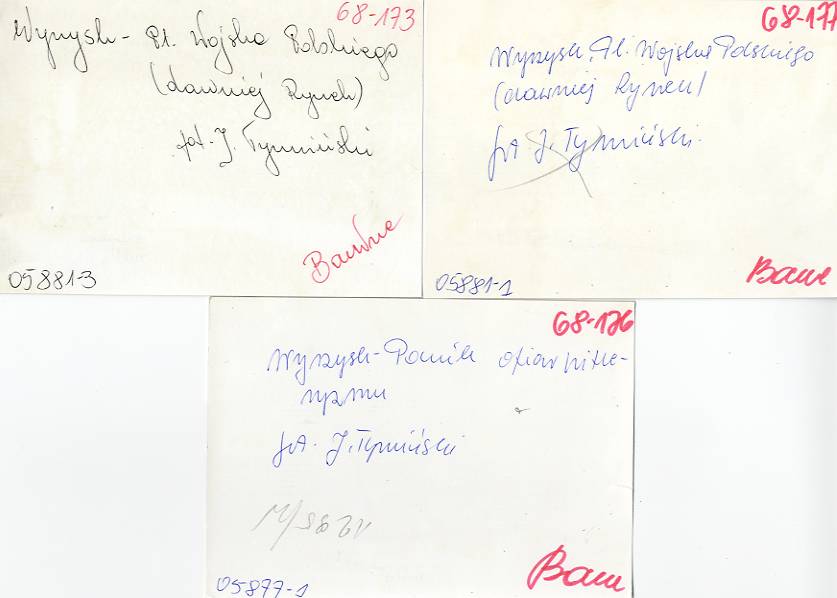 68-173
Wyrzysk - Pl. Wojska Polskiego
(dawniej Rynek)
fot. J. Tymiński
Barwne
05881-3
68-177
Wyrzysk, Pl. Wojska Polskiego
(dawniej Rynek)
fot J. Tymiński.
Barwne
05881-1
68-176
Wyrzysk - Pomnik ofiar hitle-
ryzmu
fot. J. Tymiński
Barwne
05877-1